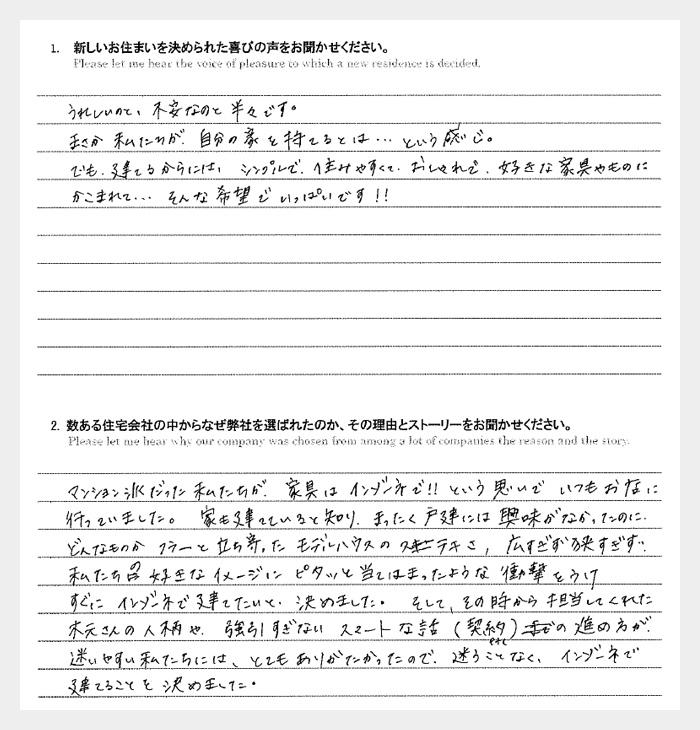 1. 新しいお住まいを決められた喜びの声をお聞かせください。
Please let me hear the voice of pleasure to which a new residence is decided.
うれしいのと、不安なのと半々です。
まさか私たちが、自分の家を持てるとは…という感じ。
でも、建てるからには、シンプルで、住みやすくて、おしゃれで、好きな家具やものに
かこまれて… そんな希望でいっぱいです!!
2. 数ある住宅会社の中からなぜ弊社を選ばれたのか、その理由とストーリーをお聞かせください。
Please let me hear why our company was chosen from among a lot of companies the reason and the story.
マンション派だった私たちが、家具はインゾーネで!!という思いでいつもお店に
行っていました。 家も建てていると知り、まったく戸建には興味がなかったのに、
どんなものか フラーと立ち寄ったモデルハウスのステキさ、広すぎず狭すぎず、
私たちの好きなイメージにピタッと当てはまったような衝撃をうけ
すぐに インゾーネで建てたいと、決めました。 そして、その時から担当してくれた
木元さんの人柄や、強引すぎないスマートな話(契約etc)の進め方が、
迷いやすい私たちには、とてもありがたかったので、迷うことなく、インゾーネで
建てることを決めました。